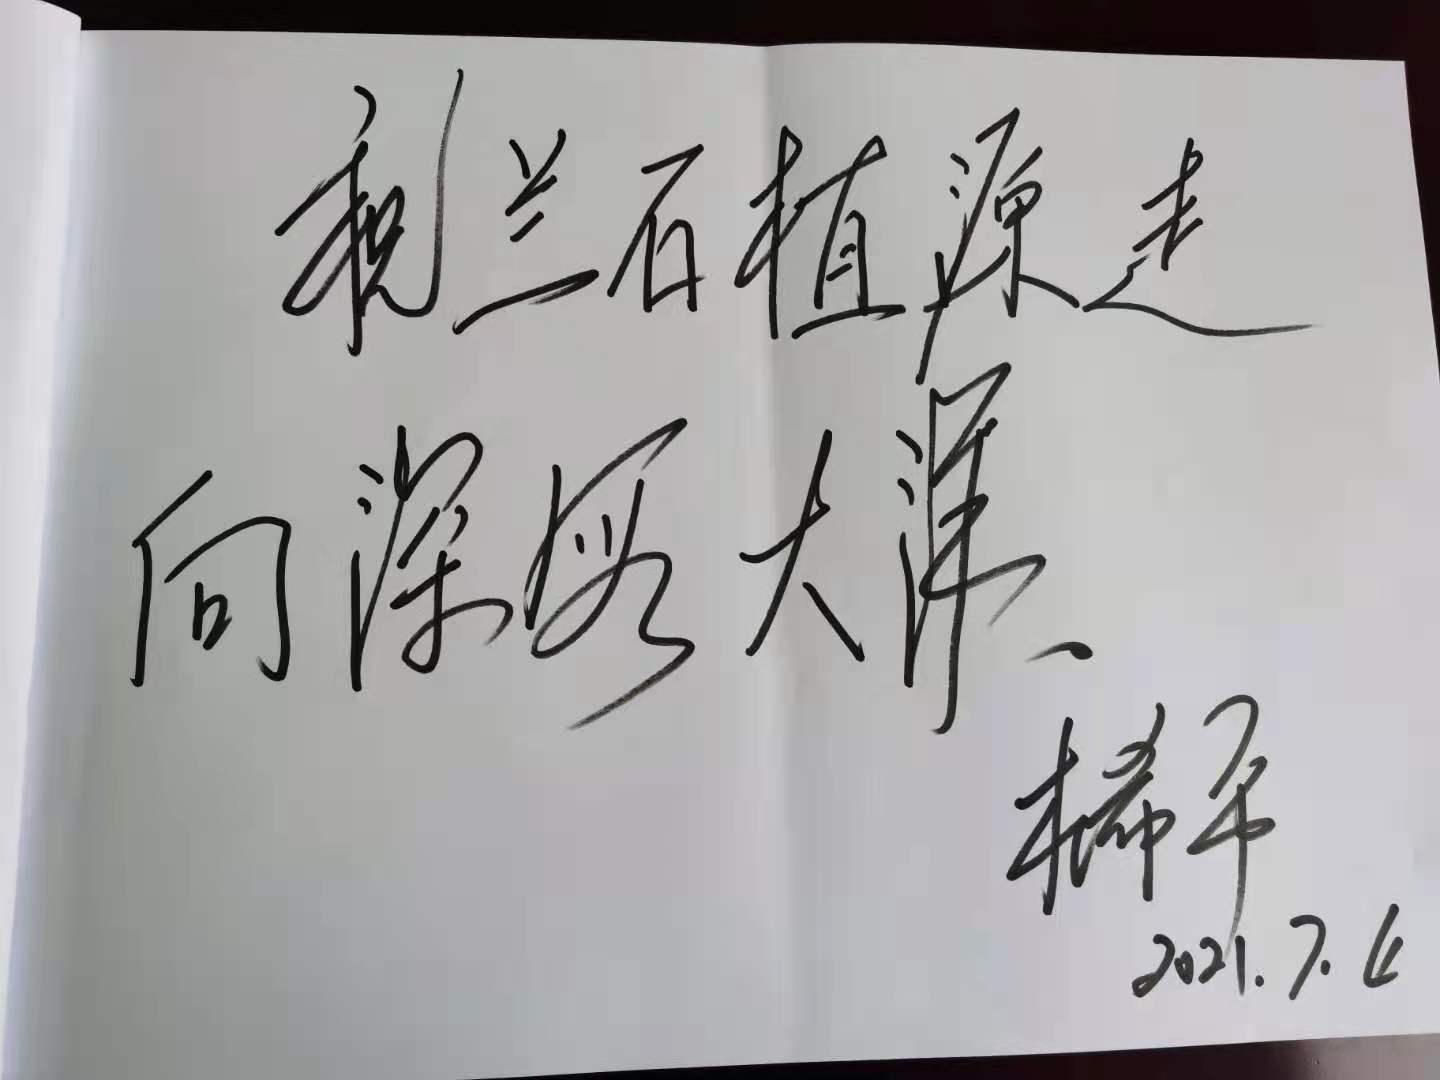 祝兰石植源走
向深海大洋、
平
2021.7.6